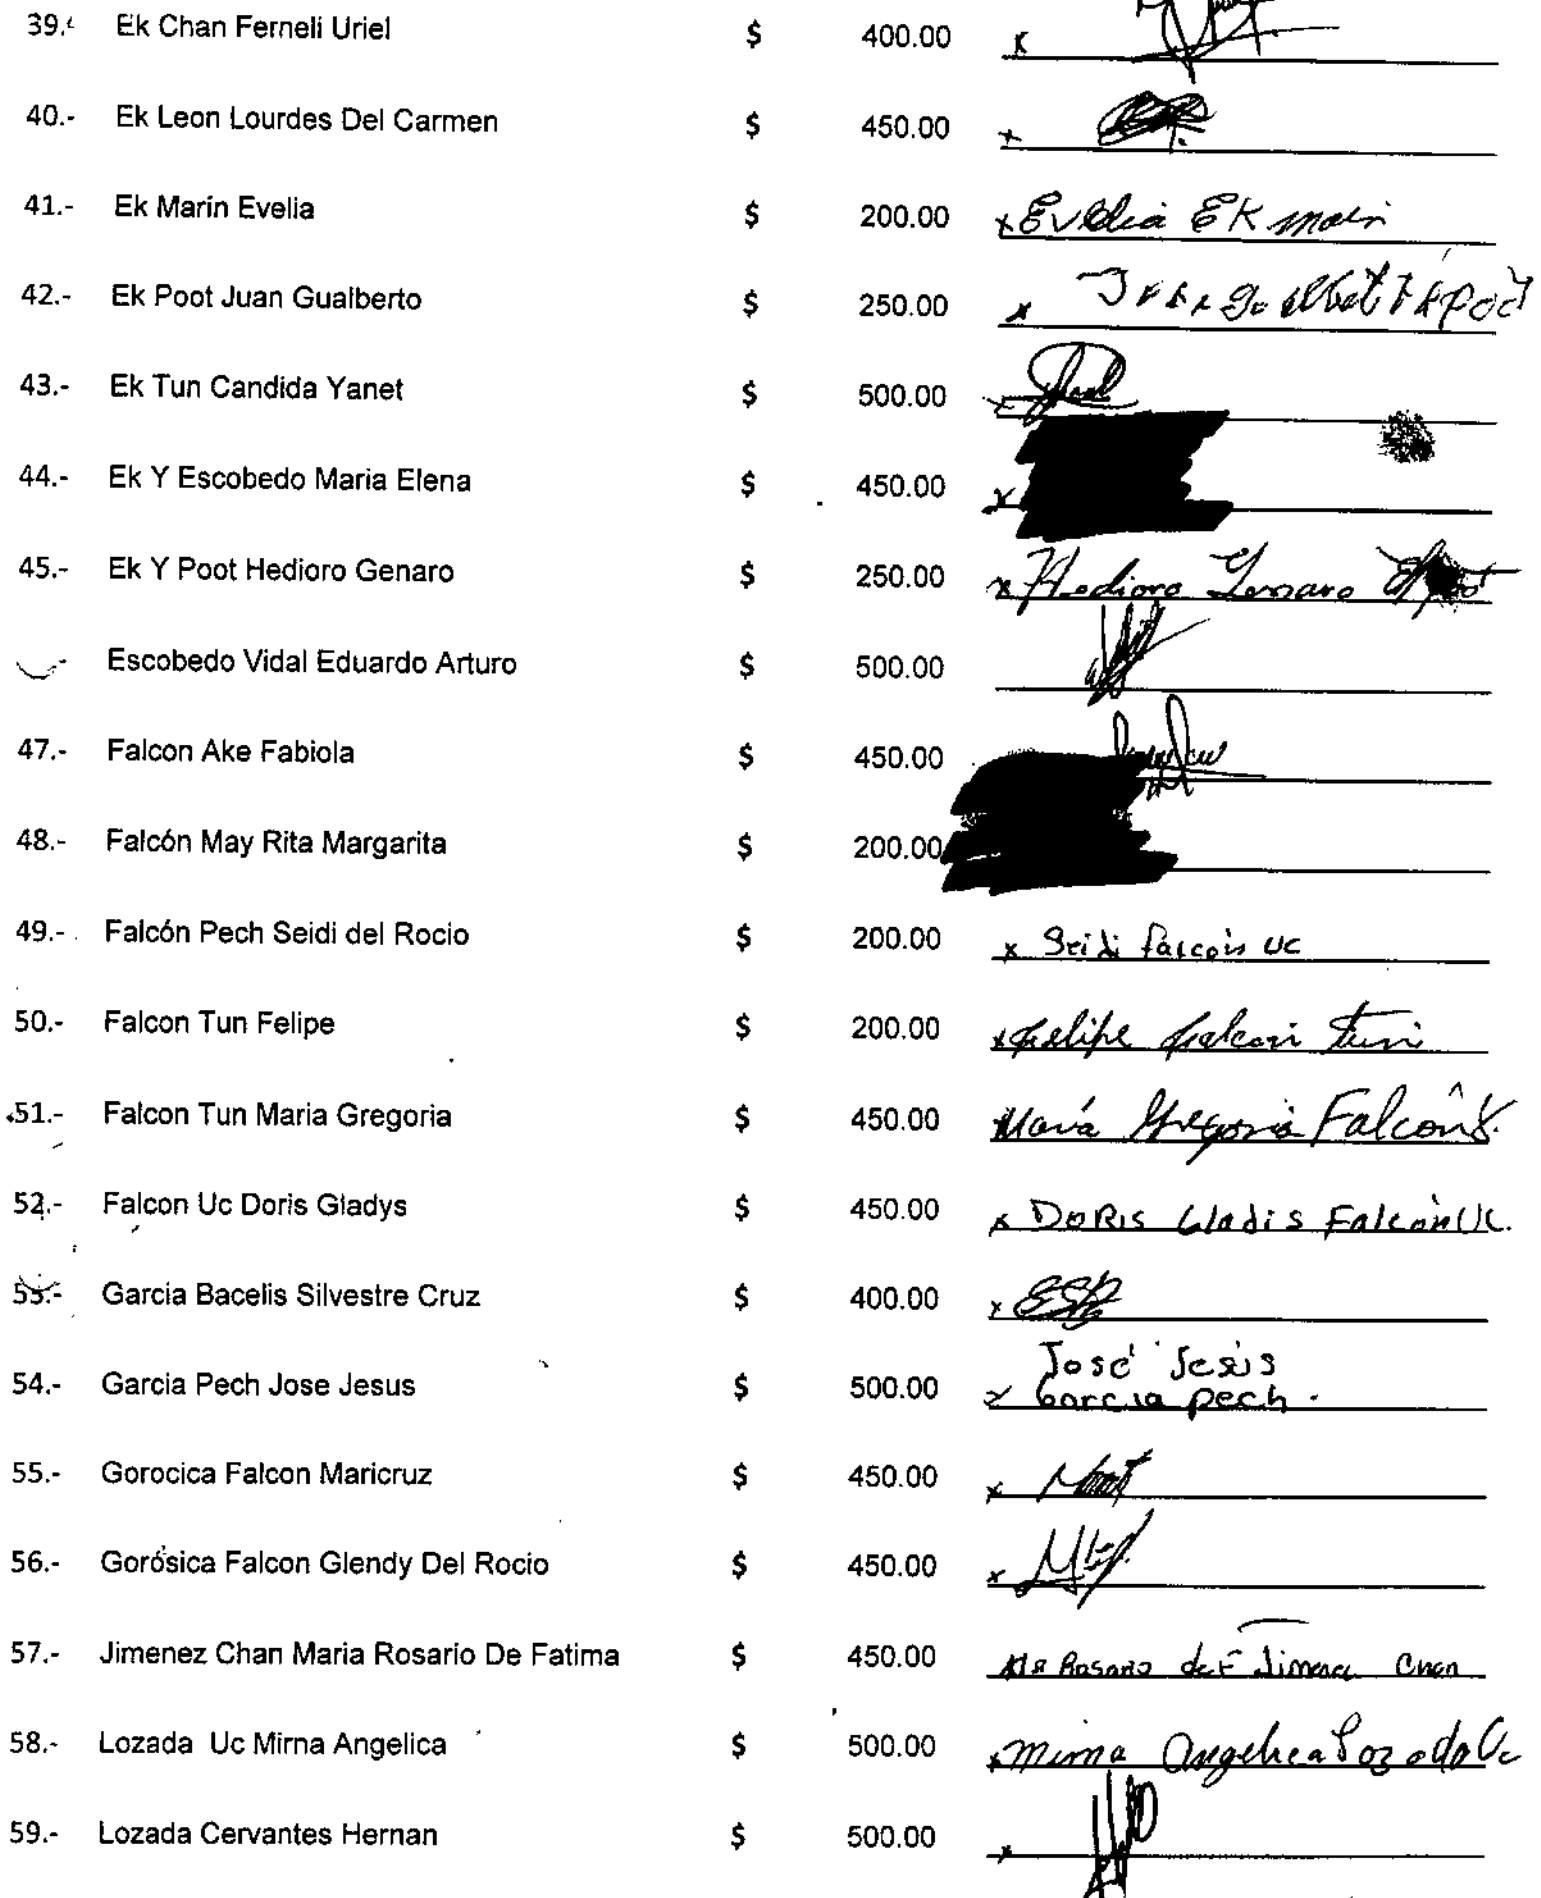 39.- Ek Chan Ferneli Uriel $ 400.00 x
40.- Ek Leon Lourdes Del Carmen $ 450.00 x
41.- Ek Marin Evelia $ 200.00 x Evelia Ek marin
42.- Ek Poot Juan Gualberto $ 250.00 x
43.- Ek Tun Candida Yanet $ 500.00 x
44.- Ek Y Escobedo Maria Elena $ 450.00 x
45.- Ek Y Poot Hedioro Genaro $ 250.00 x Hedioro Genaro
Escobedo Vidal Eduardo Arturo $ 500.00
47.- Falcon Ake Fabiola $ 450.00
48.- Falcón May Rita Margarita $ 200.00
49.- Falcón Pech Seidi del Rocio $ 200.00 x Seidi falcon uc
50.- Falcon Tun Felipe $ 200.00 x Felipe falcon Tun
51.- Falcon Tun Maria Gregoria $ 450.00 María Gregoria Falcón
52.- Falcon Uc Doris Gladys $ 450.00 x DORIS Gladis Falcon UC.
53.- Garcia Bacelis Silvestre Cruz $ 400.00 x
José Jesús
54.- Garcia Pech Jose Jesus $ 500.00 x Garcia pech.
55.- Gorocica Falcon Maricruz $ 450.00 x
56.- Gorósica Falcon Glendy Del Rocio $ 450.00 x
57.- Jimenez Chan Maria Rosario De Fatima $ 450.00 Ma Rosario de F Jimenez Chan
58.- Lozada Uc Mirna Angelica $ 500.00 x Mirna Angelica Lozada Uc
59.- Lozada Cervantes Hernan $ 500.00 x